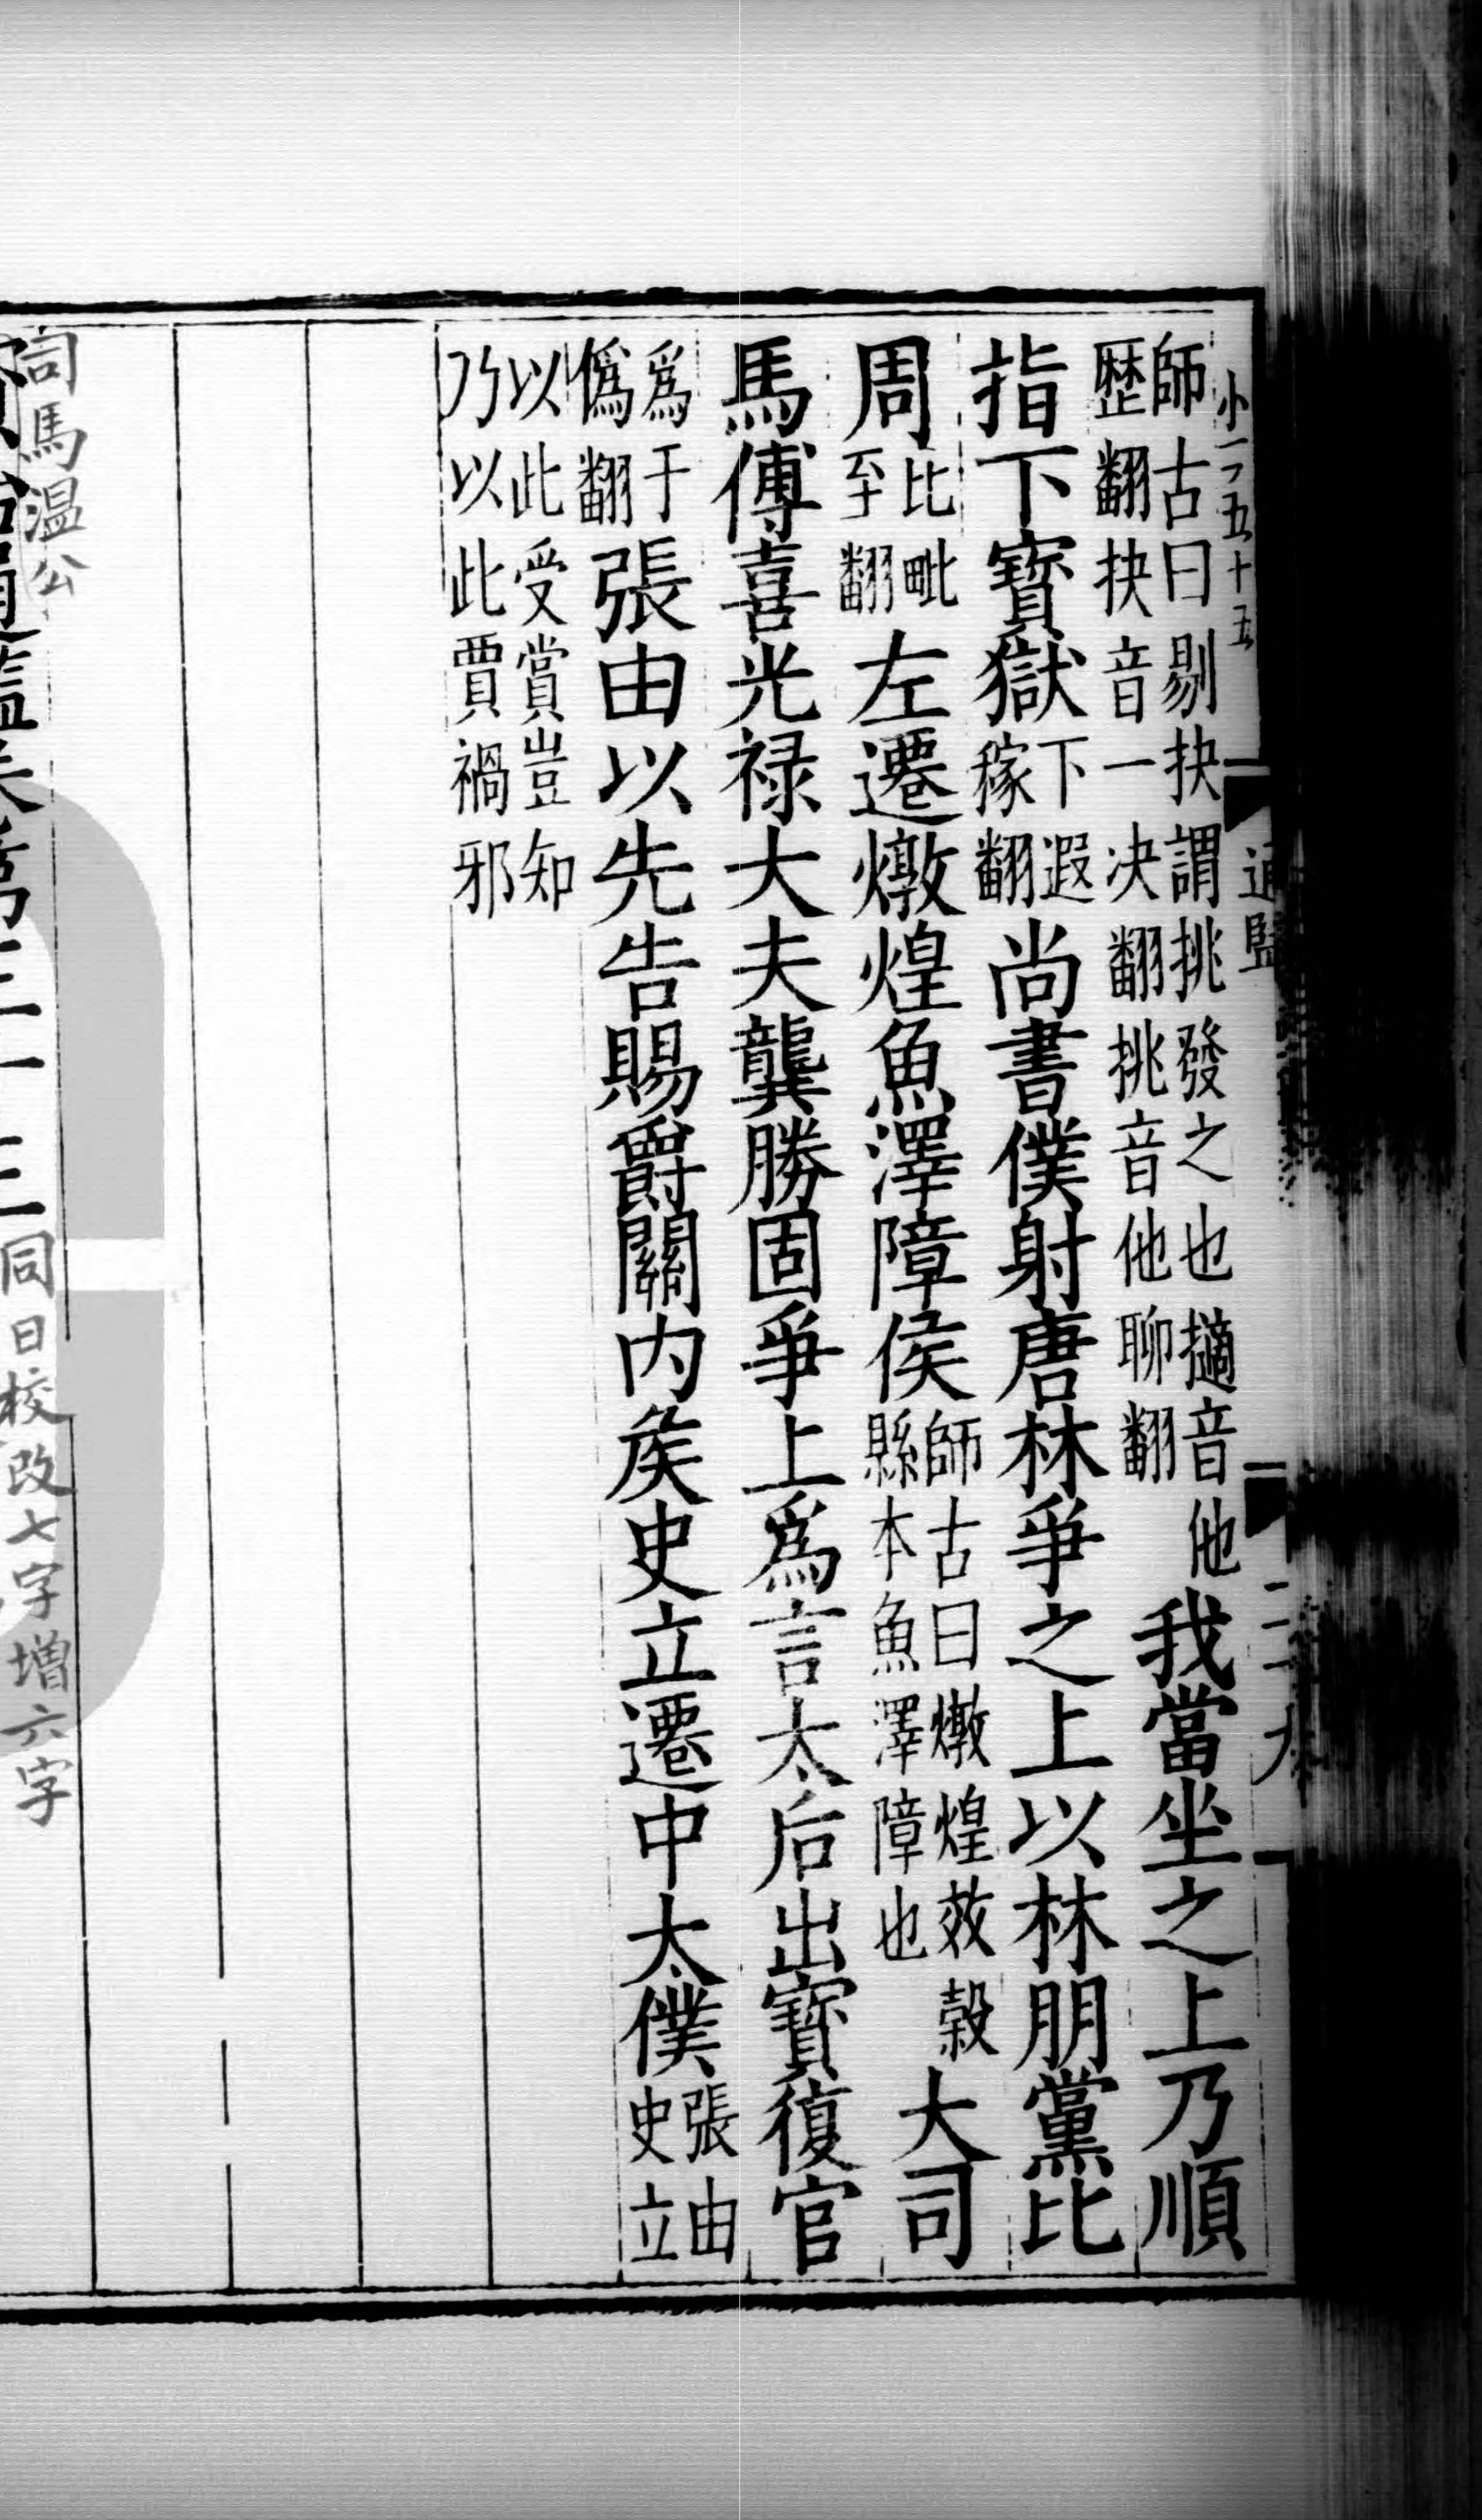 師古曰剔抉謂挑發之也擿音他歴翻抉音一决翻挑音他聊翻我當坐之上乃順
指下寶獄下遐稼翻尚書僕射唐林爭之上以林朋黨比
周比毗至翻左遷燉煌魚澤障侯師古曰燉煌效穀縣本魚澤障也大司
馬傅喜光禄大夫龔勝固爭上爲言太后出寶復官
爲于僞翻張由以先告賜爵關内矦史立遷中太僕張由史立
以此受賞豈知乃以此賈禍邪
司馬温公
同日校改七字增六字